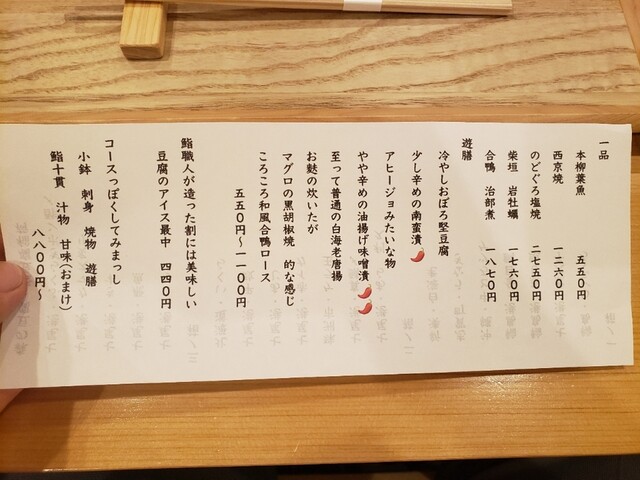 一品
本柳葉魚 五五〇円
西京焼 一二六〇円
のどぐろ塩焼 二七五〇円
柴垣 岩牡蠣 一七六〇円
合鴨 治部煮 一八七〇円
遊膳
冷やしおぼろ堅豆腐
少し辛めの南蛮漬
アヒージョみたいな物
やや辛めの油揚げ味噌漬
至って普通の白海老唐揚
お麩の炊いたが
マグロの黒胡椒焼 的な感じ
ころころ和風合鴨ロース
五五〇円～一一〇〇円
鮨職人が造った割には美味しい
豆腐のアイス最中 四四〇円
コースっぽくしてみまっし
小鉢 刺身 焼物 遊膳
鮨十貫 汁物 甘味(おまけ)
八八〇〇円～